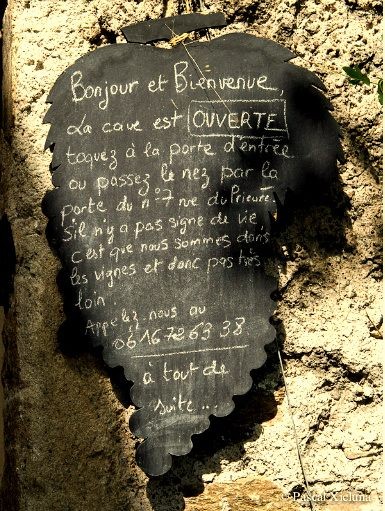 Bonjour et Bienvenue,
La cave est OUVERTE
toquez à la porte d'entrée
ou passez le nez par la
porte du n°7 rue du Prieuré.
S'il n'y a pas signe de vie,
c'est que nous sommes dans
les vignes et donc pas très
loin.
Appelez-nous au
06 16 72 63 38
à tout de
suite..
© Pascal Xicluna